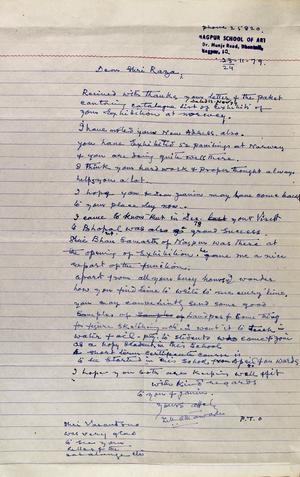 phone 25820.
NAGPUR SCHOOL OF ART
Dr. Munje Road, Dhantoli,
Nagpur,
23-11-79.
24
Dear Shri Raza,
Recived with thanks your letter & the Paket
contacing catalogue list of Exhibits of
your Exhibition at norway.
I have noted your New Address also.
you have Exhibited 32 paintings at Norway
& you are doing quite well there.
I think your hard work & Proper thought always
helps you a lot.
I hope your Janine may have come back
to your place by now.
I came to know that in Dec 78 your Visit
to Bhopal was also grand success
Shri Bhau Samarth of Nagpur was there at
the opening of Exhibition he gave me a nice
report of the function.
apart from all your busy hours I wonder
how you find time to write to me every time,
you may conveniently send some good
samples of
for figure sketching which i want it to teach in
water & oil to students who come to join
as a hopy students in this School
A short term certificate course is
to be started in this School from April for wards
I hope you both are keeping well & fit
with kind regards
to you & Janine.
yours affely
P.T.O
Shri Vasantrao
was very glad
to see your
letter & the
catalogue etc